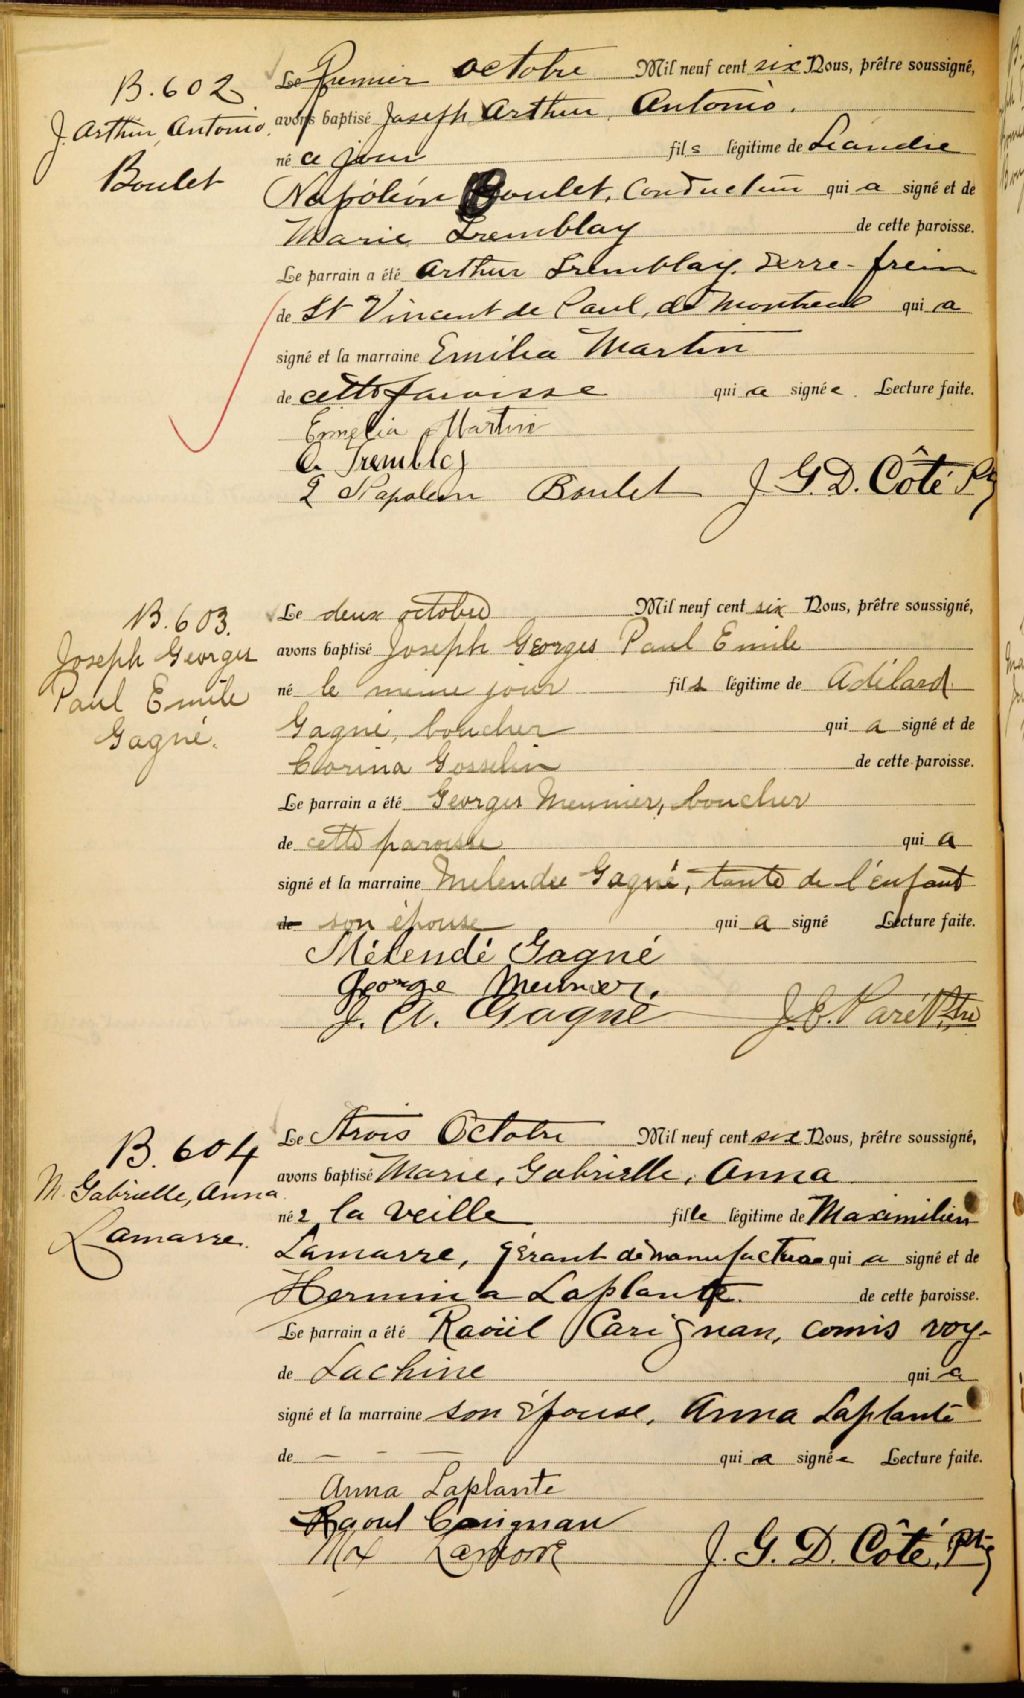 B. 602
J. Arthur, Antonio
Boulet
Le Premier octobre Mil neuf cent six Nous, prêtre soussigné,
avons baptisé Joseph Arthur, Antonio.
né ce jour fils légitime de Léandre
Napoléon Boulet, Conducteur qui a signé et de
Marie Tremblay de cette paroisse.
Le parrain a été Arthur Tremblay, serre-frein
de St Vincent de Paul, de Montreal qui a
signé et la marraine Emilia Martin
de cette paroisse qui a signée. Lecture faite.
Emelia Martin
A. Tremblay
L Napoleon Boulet J. G. D. Côté Ptre
B. 603.
Joseph Georges
Paul Emile
Gagné.
Le deux octobre Mil neuf cent six Nous, prêtre soussigné,
avons baptisé Joseph Georges Paul Emile
né le meme jour fils légitime de Adélard
Gagné, boucher qui a signé et de
Corina Gosselin de cette paroisse.
Le parrain a été Georges Meunier, boucher
de cette paroisse qui a
signé et la marraine Melendée Gagné, tante de l'enfant
de son épouse qui a signé Lecture faite.
Mélendé Gagné
George Meunier.
J. A. Gagné J. E. Paré Ptre
B. 604
M. Gabrielle, Anna
Lamarre.
Le trois Octobre Mil neuf cent six Nous, prêtre soussigné,
avons baptisé Marie, Gabrielle, Anna
née la veille fille légitime de Maximilien
Lamarre, gérant de manufacture qui a signé et de
Hermina Laplante. de cette paroisse.
Le parrain a été Raoül Carignan, comis voy-
de Lachine qui a
signé et la marraine son épouse, Anna Laplante
de — — — qui a signée Lecture faite.
Anna Laplante
Raoul Carignan
Max Lamarre J. G. D. Côté, Ptre